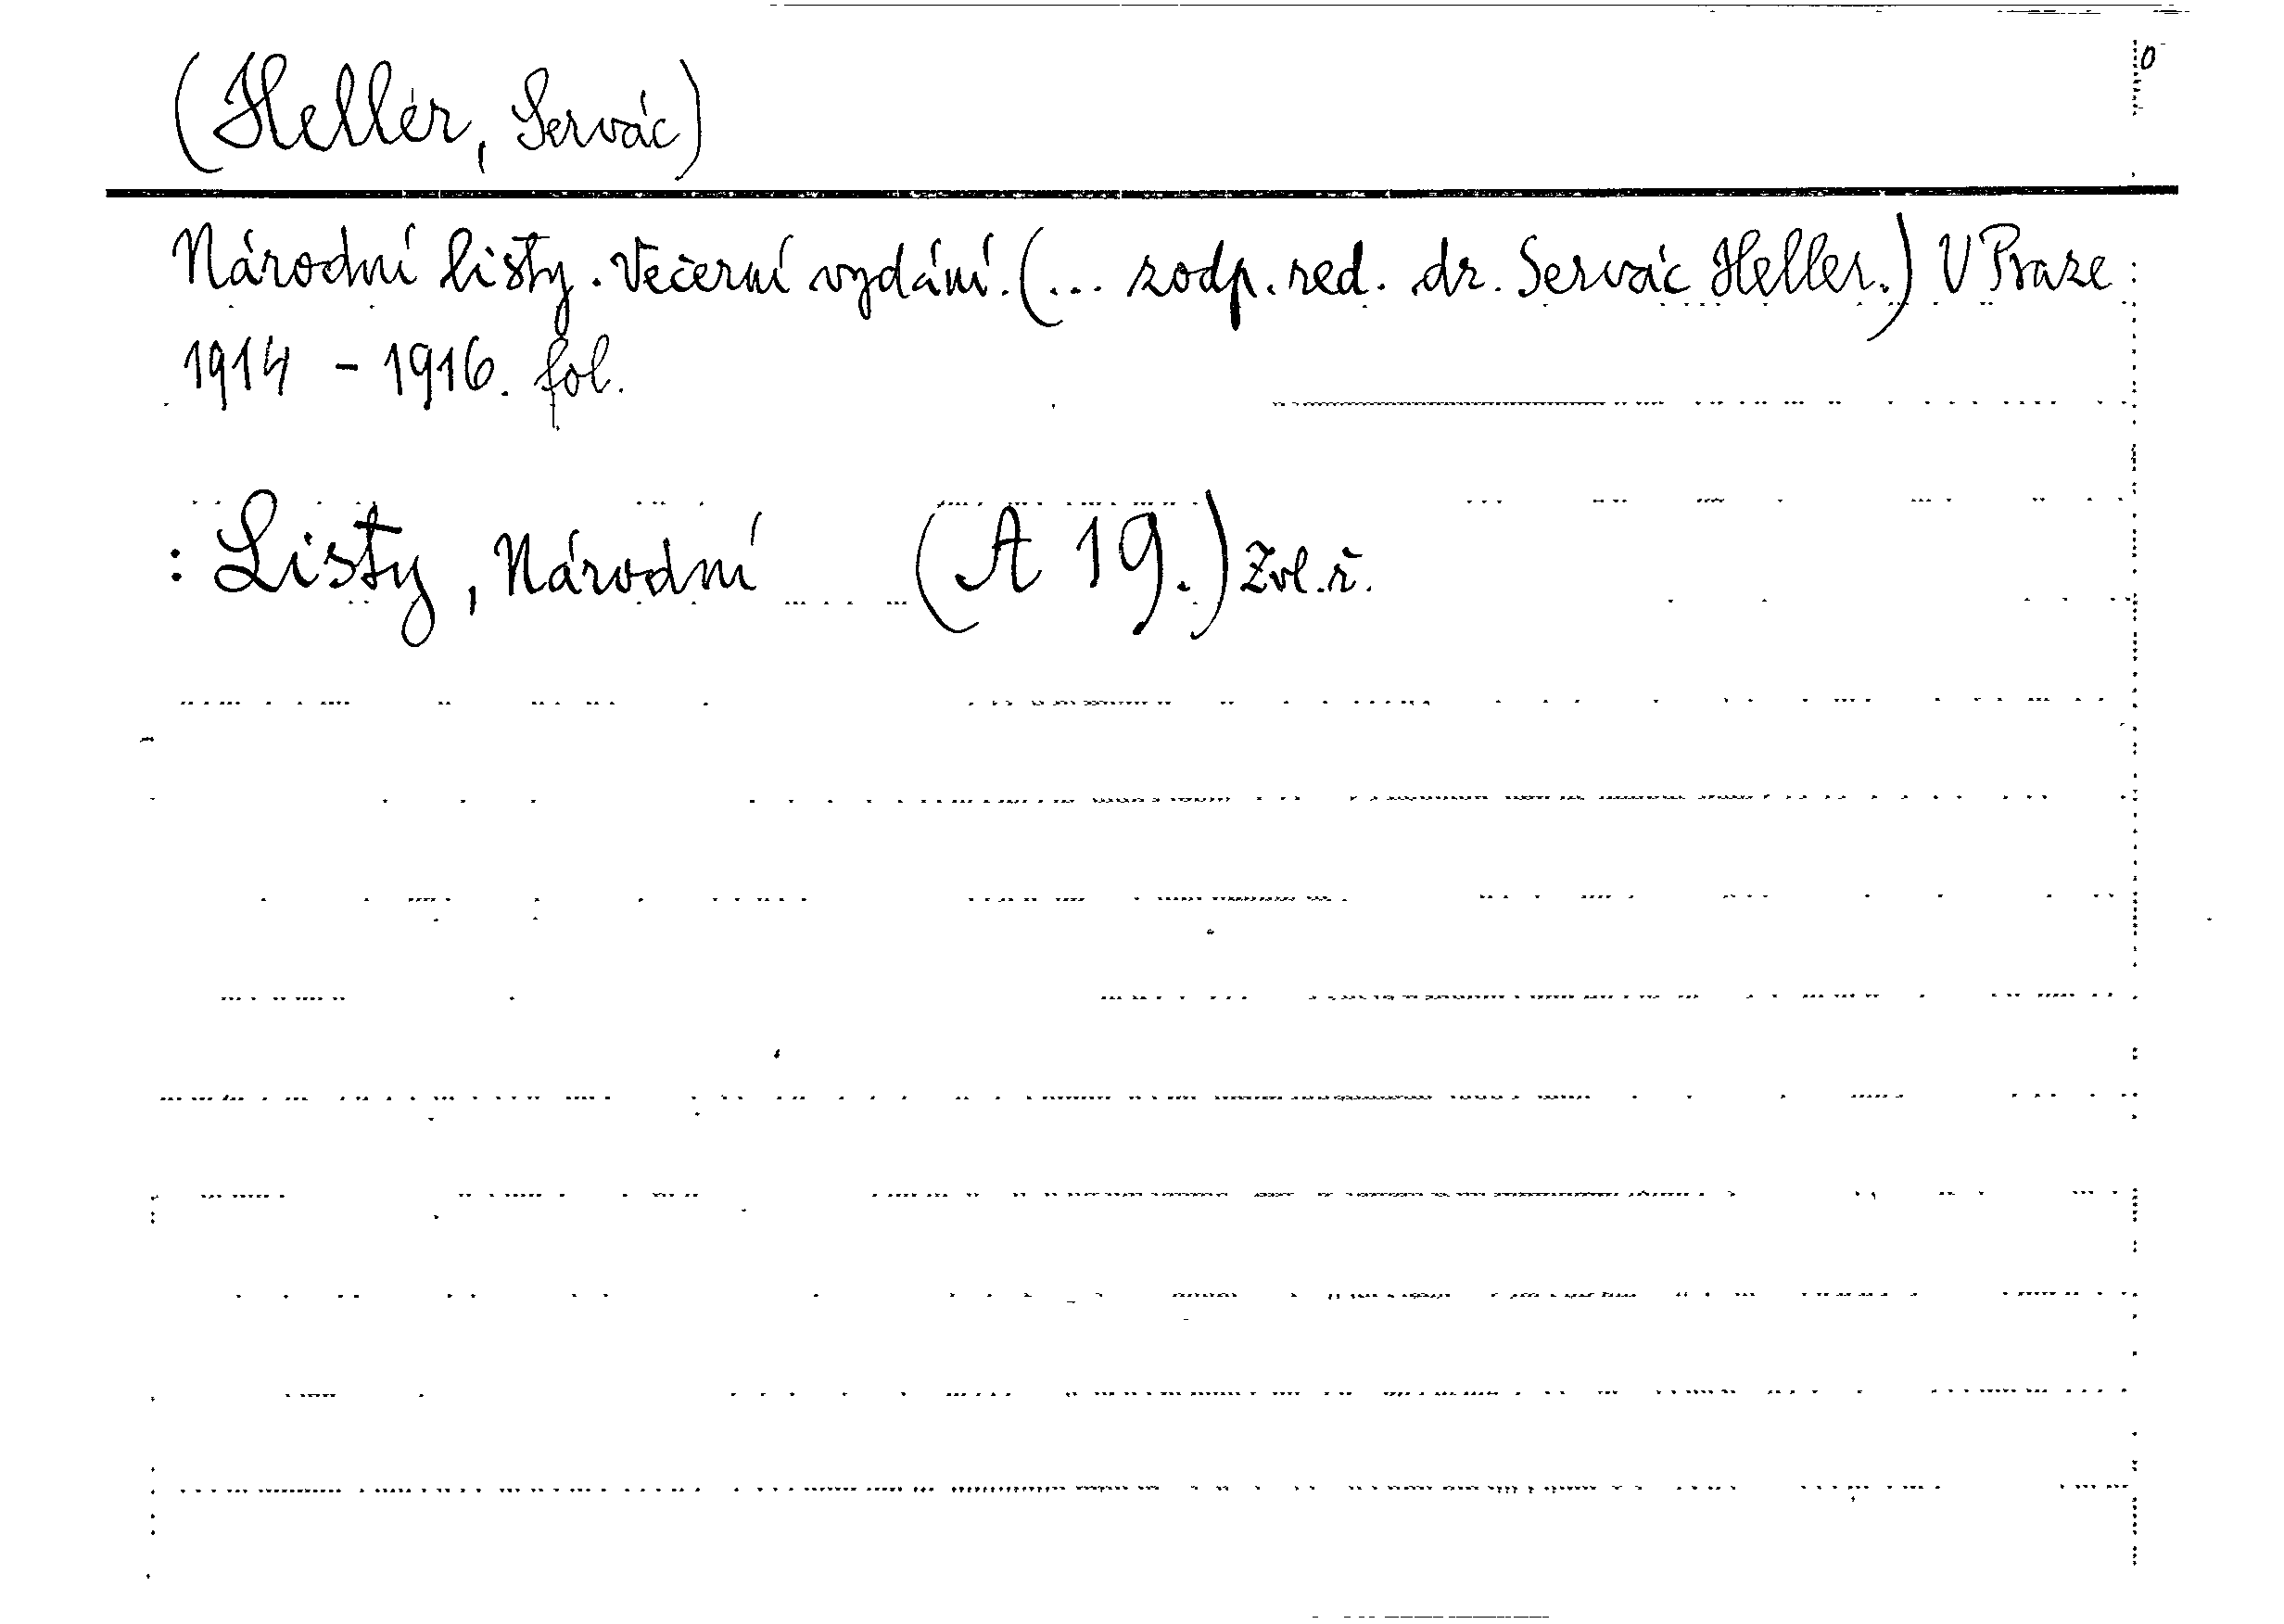 (Heller, Servác)
Národní listy. Večerní vydání. (... zodp. red. dr. Servác Heller.) V Praze
1914 - 1916. fol.
: Listy, Národní (A 19.) Zvl. ř.